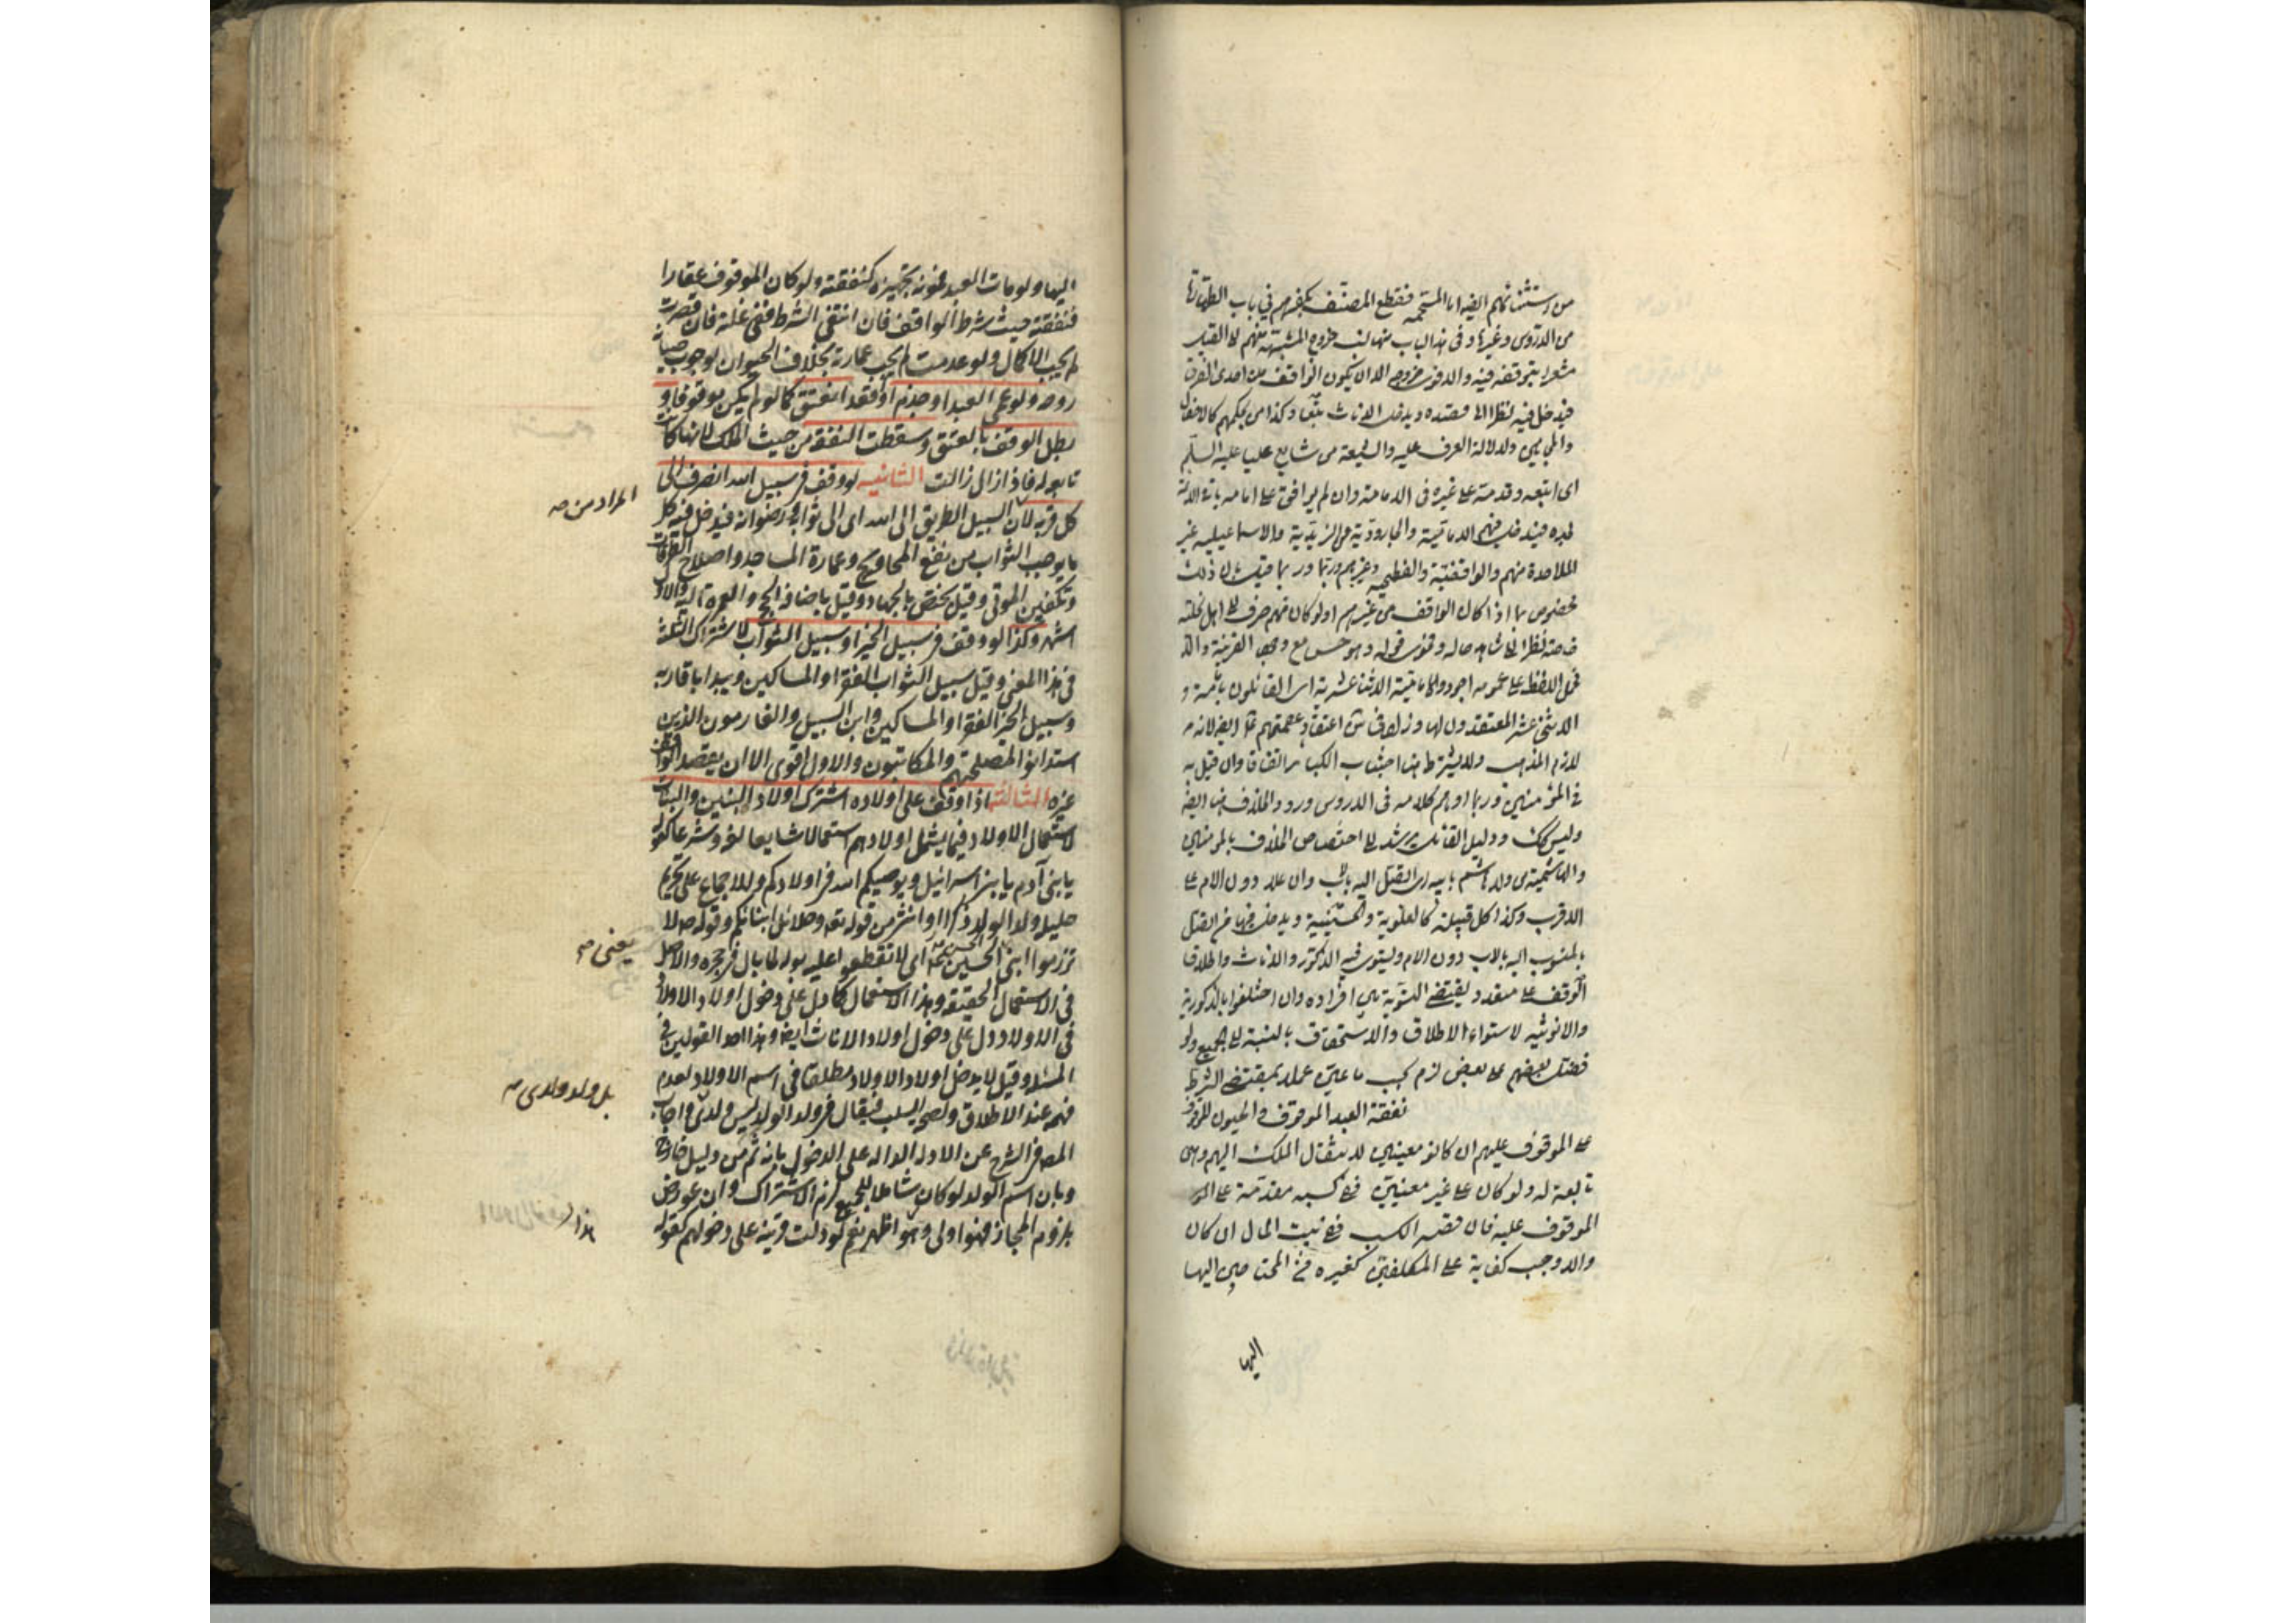 من استثنائهم ايضا اما المجسمة فقطع المصنف بكفرهم في باب الطهارة
من الدروس وغيرها وفي هذا الباب منها لف خروج المشبهة منهم
مشعرا بتوقفه فيه والاقوى خروجه الا ان يكون الواقف من احدى الفرق
فيدخل فيه نظرا الى قصده ويدخل الاناث تبعا وكذا من بحكمهم كالاطفال
والمجانين ولدلالة العرف عليه والشيعة من شايع عليا عليه السلام
اى اتبعه وقدمه على غيره في الامامة وان لم يوافق على امامة باقي الائمة
بعده فيدخل فيهم الامامية والجارودية من الزيدية والاسماعيلية غير
الملاحدة منهم والواقفية والفطحية وغيرهم وربما قيل ان ذلك
مخصوص بما اذا كان الواقف من غيرهم اما لو كان منهم صرف الى اهل نحلته
خاصة نظرا الى شاهد حاله وفحوى قوله وهو حسن مع وجود القرينة والا
فحمل اللفظ على عمومه اجود والامامية الاثنا عشرية اى القائلون بامامة
الاثنى عشر المعتقدون لها وزاد في ش اعتقاد عصمتهم ع ايضا لانه
لازم المذهب ولا يشترط هنا اجتناب الكبائر اتفاقا وان قيل به
في المؤمنين وربما اوهم كلامه في الدروس ورود الخلاف هنا ايضا
وليس كك ودليل القائل يرشد الى اختصاص الخلاف بالمؤمنين
والهاشمية من ولده هاشم بابيه اى اتصل اليه بالاب وان علا دون الام على
الاقرب وكذا كل قبيلة كالعلوية والحسينية ويدخل فيها من اتصل
بالمنسوب اليه بالاب دون الام ويستوى فيه الذكور والاناث واطلاق
الوقف على متعدد يقتضي التسوية بين افراده وان اختلفوا بالذكورية
والانوثية لاستواء الاطلاق والاستحقاق بالنسبة الى الجميع ولو
فضل بعضهم على بعض لزم بحسب ما عين عملا بمقتضى الشرط
نفقة العبد الموقوف والحيوان الموقوف
على الموقوف عليهم ان كانوا معينين لانتقال الملك اليهم وهى
تابعة له ولو كان على غير معينين ففي كسبه مقدمة على
الموقوف عليه فان قصر الكسب ففي بيت المال ان كان
والا وجب كفاية على المكلفين كغيره من المحتاجين اليها
اليها
اليها ولو مات العبد فمونة تجهيزه كنفقته ولو كان الموقوف عقارا
فنفقته حيث شرط الواقف فان انتفى الشرط ففي غلته فان قصرت
لم يجب الاكمال ولو عدمت لم يجب عمارته بخلاف الحيوان لوجوب صيانة
روحه ولو عمى العبد او جذم او اقعد انعتق كما لو لم يكن موقوفا و
بطل الوقف بالعتق وسقطت النفقة من حيث الملك لانها كانت
تابعة له فاذا زال زالت الثانية لو وقف في سبيل الله انصرف الى
كل قربة لان السبيل الطريق الى الله اى الى ثوابه ورضوانه فيدخل فيه كل
ما يوجب الثواب من نفع المحاويج وعمارة المساجد واصلاح الطرقات
وتكفين الموتى وقيل يختص بالجهاد وقيل باضافة الحج والعمرة اليه والاول
اشهر وكذا لو وقف في سبيل الخير او سبيل الثواب لاشتراك الثلثة
في هذا المعنى وقيل سبيل الثواب الفقراء والمساكين ويبدا باقاربه
وسبيل الخير الفقراء والمساكين وابن السبيل والغارمون الذين
استدانوا لمصلحتهم والمكاتبون والاول اقوى الا ان يقصد الواقف
غيره الثالثة اذا وقف على اولاده اشترك اولاد البنين والبنات
لاستعمال الاولاد فيما يشمل اولادهم استعمالا شايعا لغة وشرعا كقوله
يا بنى آدم يا بنى اسرائيل ويوصيكم الله في اولادكم وللاجماع على تحريم
حليلة ولد الولد ذكرا او انثى من قوله تعه وحلائل ابنائكم وقوله ص لا
تزرموا ابنى الحسين اى لا تقطعوا عليه بوله لما بال في حجره والاصل
في الاستعمال الحقيقة وهذا الاستعمال كما دل على دخول اولاد الاولاد
في الاولاد دل على دخول اولاد الاناث ايضا وهذا احد القولين في
المسئلة وقيل لا يدخل اولاد الاولاد مطلقا في اسم الاولاد لعدم
فهمه عند الاطلاق ولصحة السلب فيقال في ولد الولد ليس ولدى واجاب
المصه في الشرح عن الادلة الدالة على الدخول بانه ثم من دليل خارج
وبان اسم الولد لو كان شاملا للجميع لزم الاشتراك وان عورض
بلزوم المجاز فهو اولى وهو اظهر نعم لو دلت قرينة على دخولهم كقوله
المراد من صه
يعنى صه
بل ولد ولدى صه